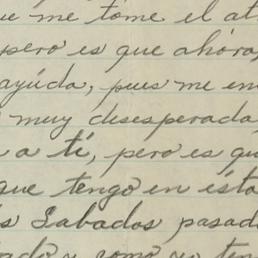 ue me tome el at
pero es que ahóra,
ayúda, pues me en
muy desesperada
a tí, pero es qu
que tengo en ésta
s Sabados pasad
y como no ten